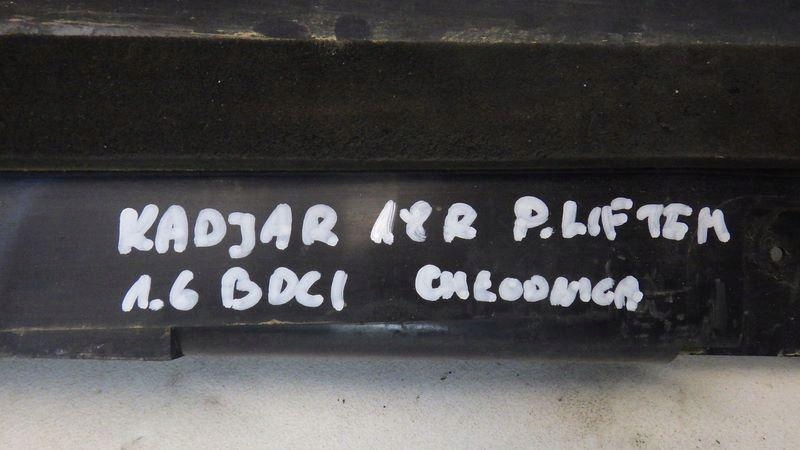 KADJAR 18R P.LIFTEM
1.6 BDCI CHŁODNICA